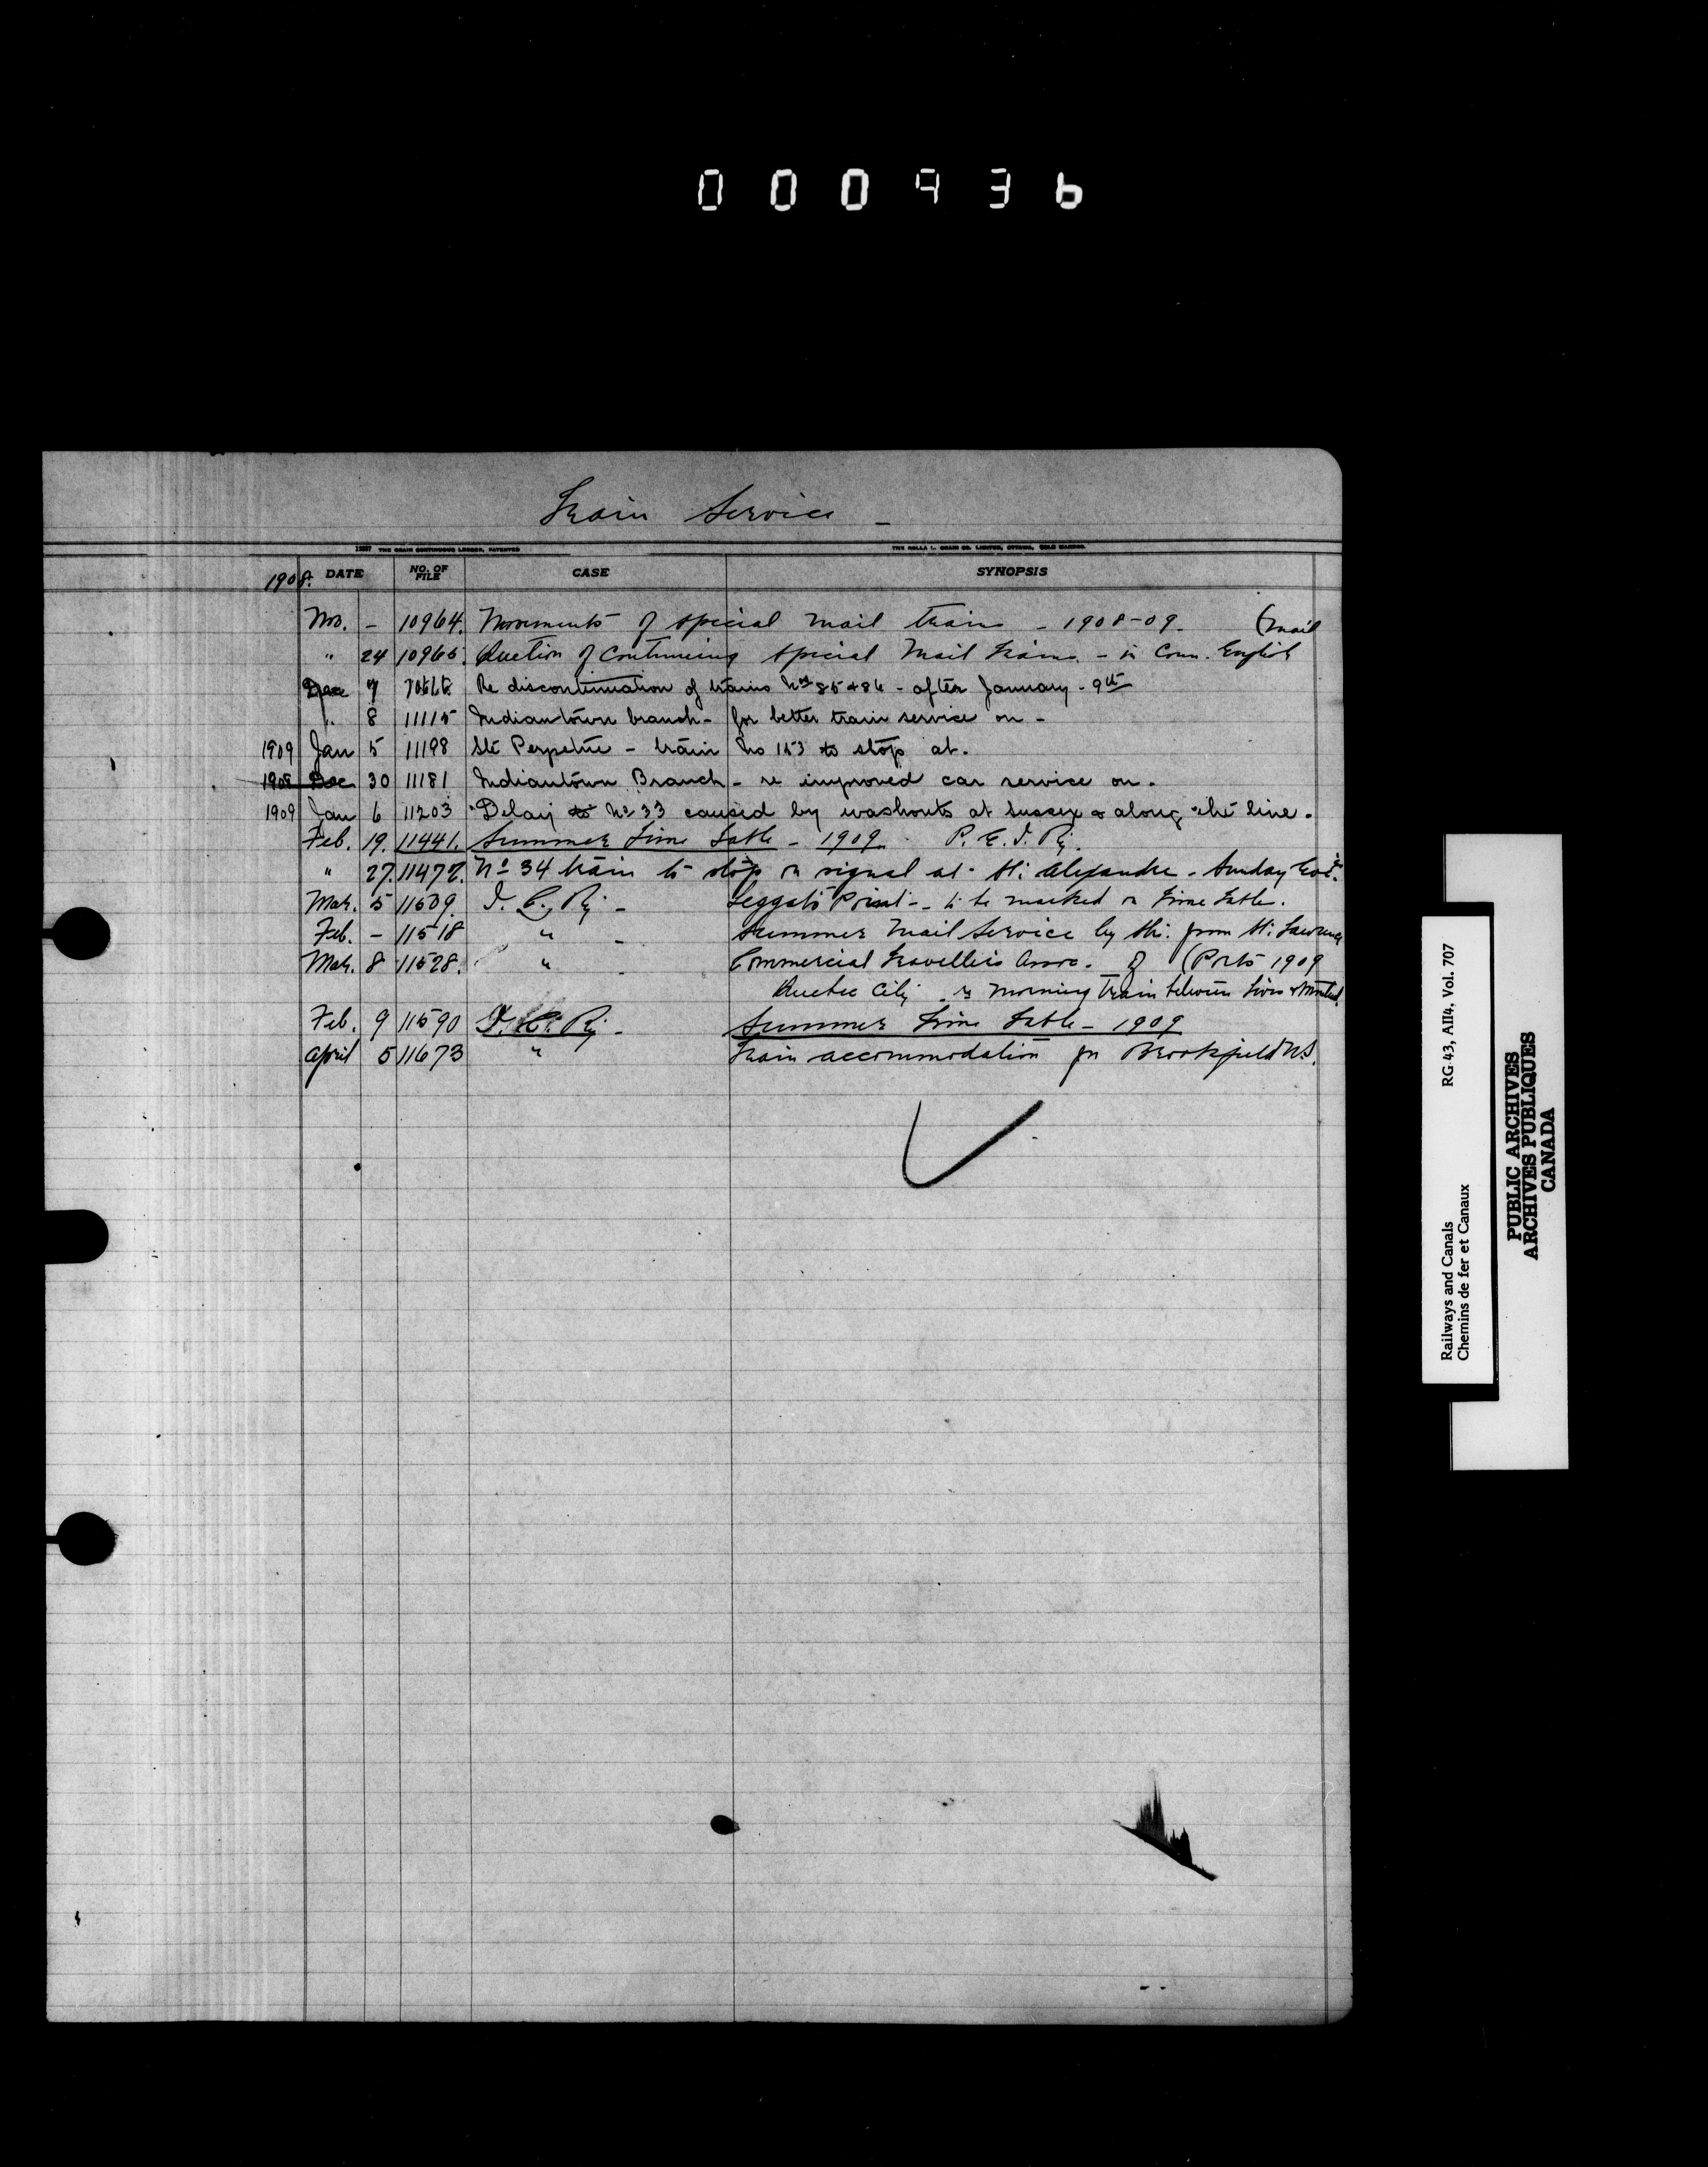 000936
Train Service -
11257 THE CRAIN CONTINUOUS LEDGER, PATENTED THE ROLLA L. CRAIN CO. LIMITED, OTTAWA,
1908. DATE NO. OF FILE CASE SYNOPSIS
Nov. - 10964. Movements of special mail trains - 1908-09. (mail
" 24 10965. Question of continuing special Mail trains - in Conn. English
Dec 7 Re discontinuation of trains Nos 85 & 86 - after January - 9th
". 8 11115 Indiantown branch - for better train service on -
1909 Jan 5 11198 Ste Perpetue - train No 153 to stop at.
1908 Dec 30 11181 Indiantown Branch - re improved car service on.
1909 Jan 6 11203 Delay to No 33 caused by washouts at Sussex & along the line.
Feb. 19. 11441. Summer Time Table - 1909. P. E. I. Ry.
" 27. 11472. No 34 train to stop on signal at St. Alexandre - Sunday
Mar. 5 11509. I. C. Ry - Leggatts Point - to be marked on Time Table.
Feb. - 11518 " - Summer Mail Service by from St. Lawrence
Mar. 8 11528. " - Commercial Travellers Asso. of (Ports 1909
Quebec City - re morning train between Levis &
Feb. 9 11590 I. C. Ry - Summer Time Table - 1909
April 5 11673 " Train accommodation for Brookfield N.S.
Railways and Canals RG 43, AII4, Vol. 707
Chemins de fer et Canaux
PUBLIC ARCHIVES
ARCHIVES PUBLIQUES
CANADA